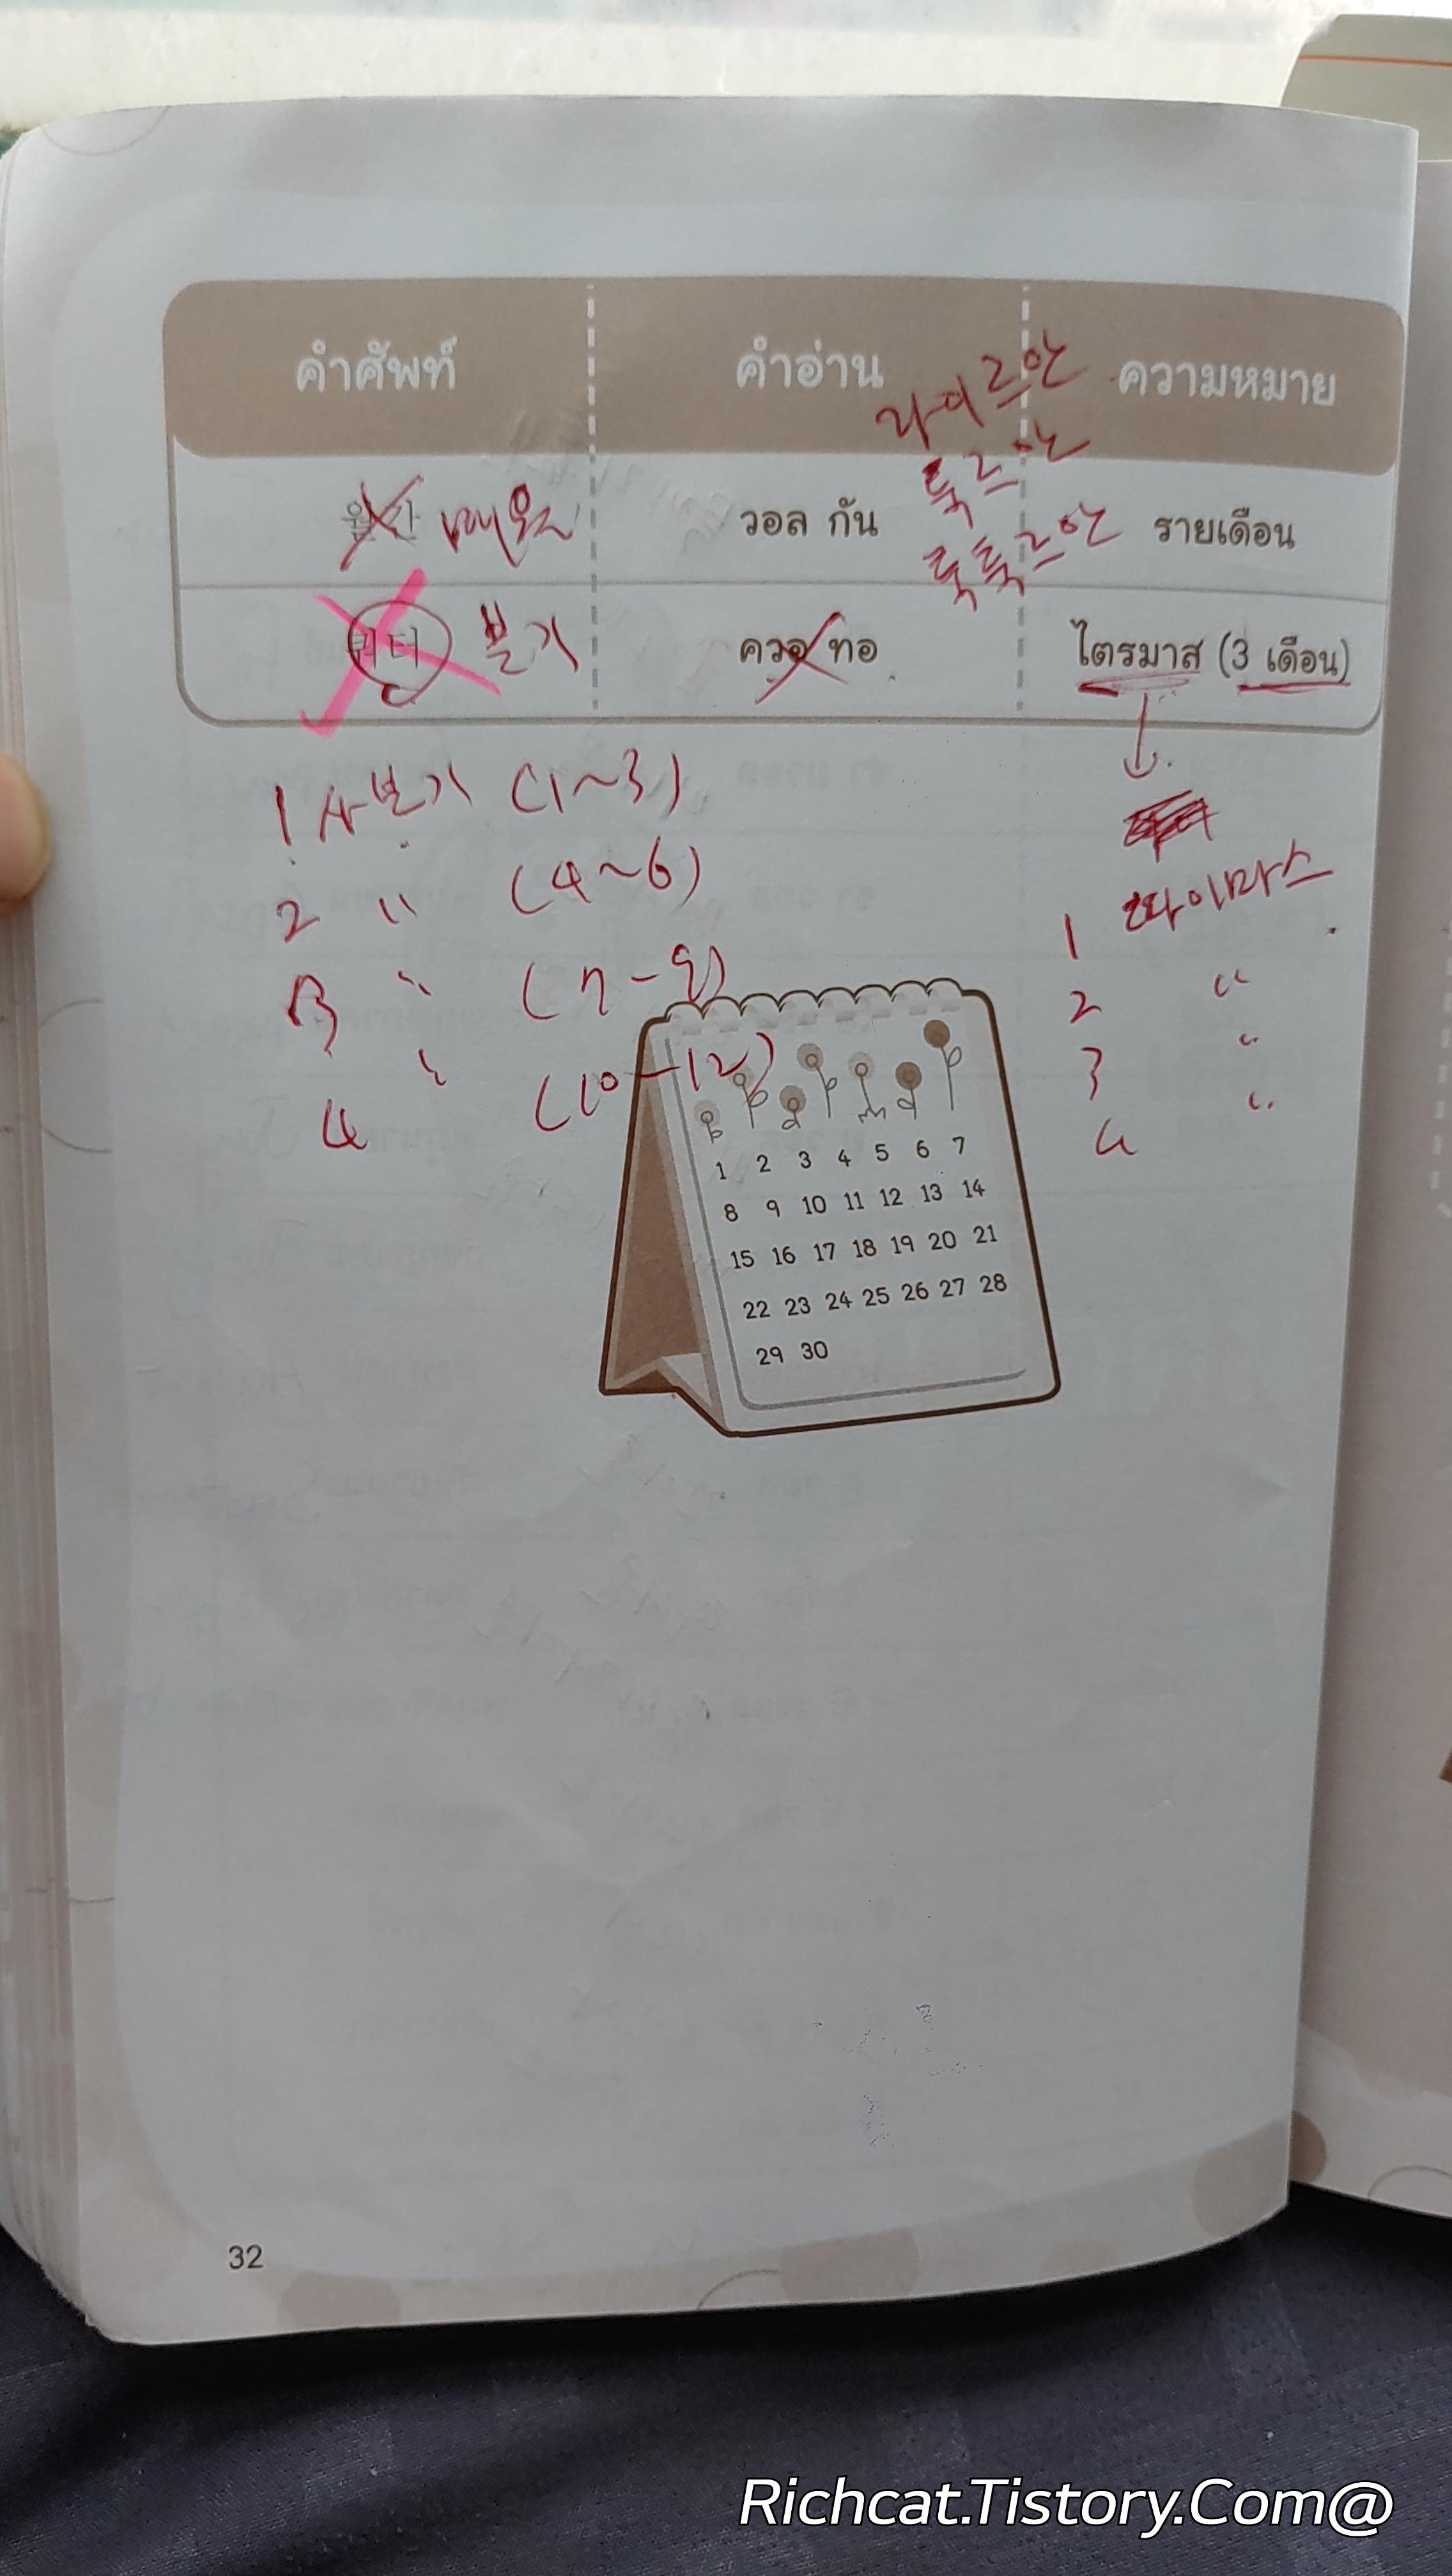 คำศัพท์ คำอ่าน ความหมาย
라이르안
특르안
특특르안
월간 매월 วอล กัน รายเดือน
쿼터 분기 ควอ ทอ ไตรมาส (3 เดือน)
1 사분기 (1~3)
2 " (4~6)
3 " (7-9)
4 " (10-12)
1 뜨라이마스
2 "
3 "
4 "
1 2 3 4 5 6 7
8 9 10 11 12 13 14
15 16 17 18 19 20 21
22 23 24 25 26 27 28
29 30
32
Richcat.Tistory.Com@